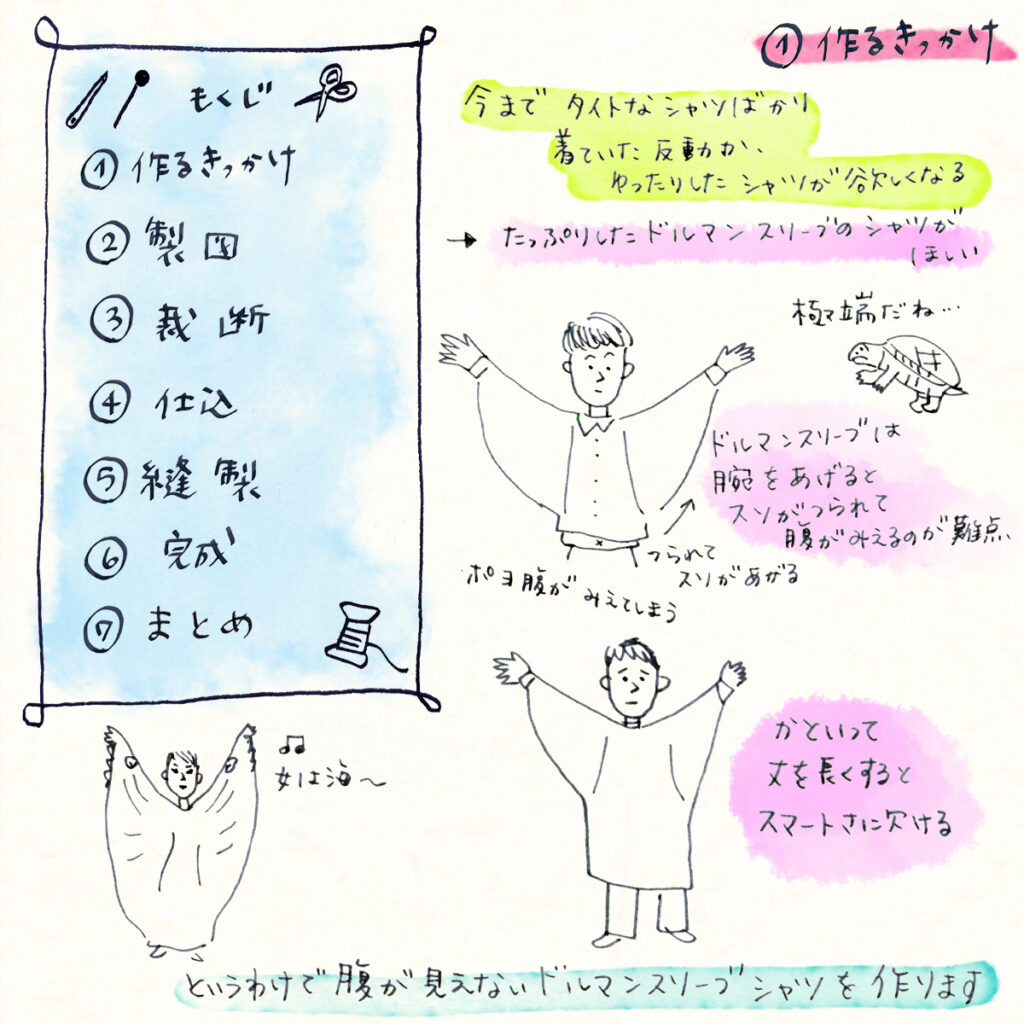 もくじ
① 作るきっかけ
② 製図
③ 裁断
④ 仕込
⑤ 縫製
⑥ 完成
⑦ まとめ
① 作るきっかけ
今まで タイトなシャツばかり
着ていた反動か、
ゆったりしたシャツが欲しくなる
→ たっぷりしたドルマンスリーブのシャツが
ほしい
極端だね…
ドルマンスリーブは
腕をあげると
スソがつられて
腹がみえるのが難点、
つられて
スソがあがる
ポヨ腹が みえてしまう
かといって
丈を長くすると
スマートさに欠ける
♫
女は海～
というわけで腹が見えないドルマンスリーブシャツを作ります